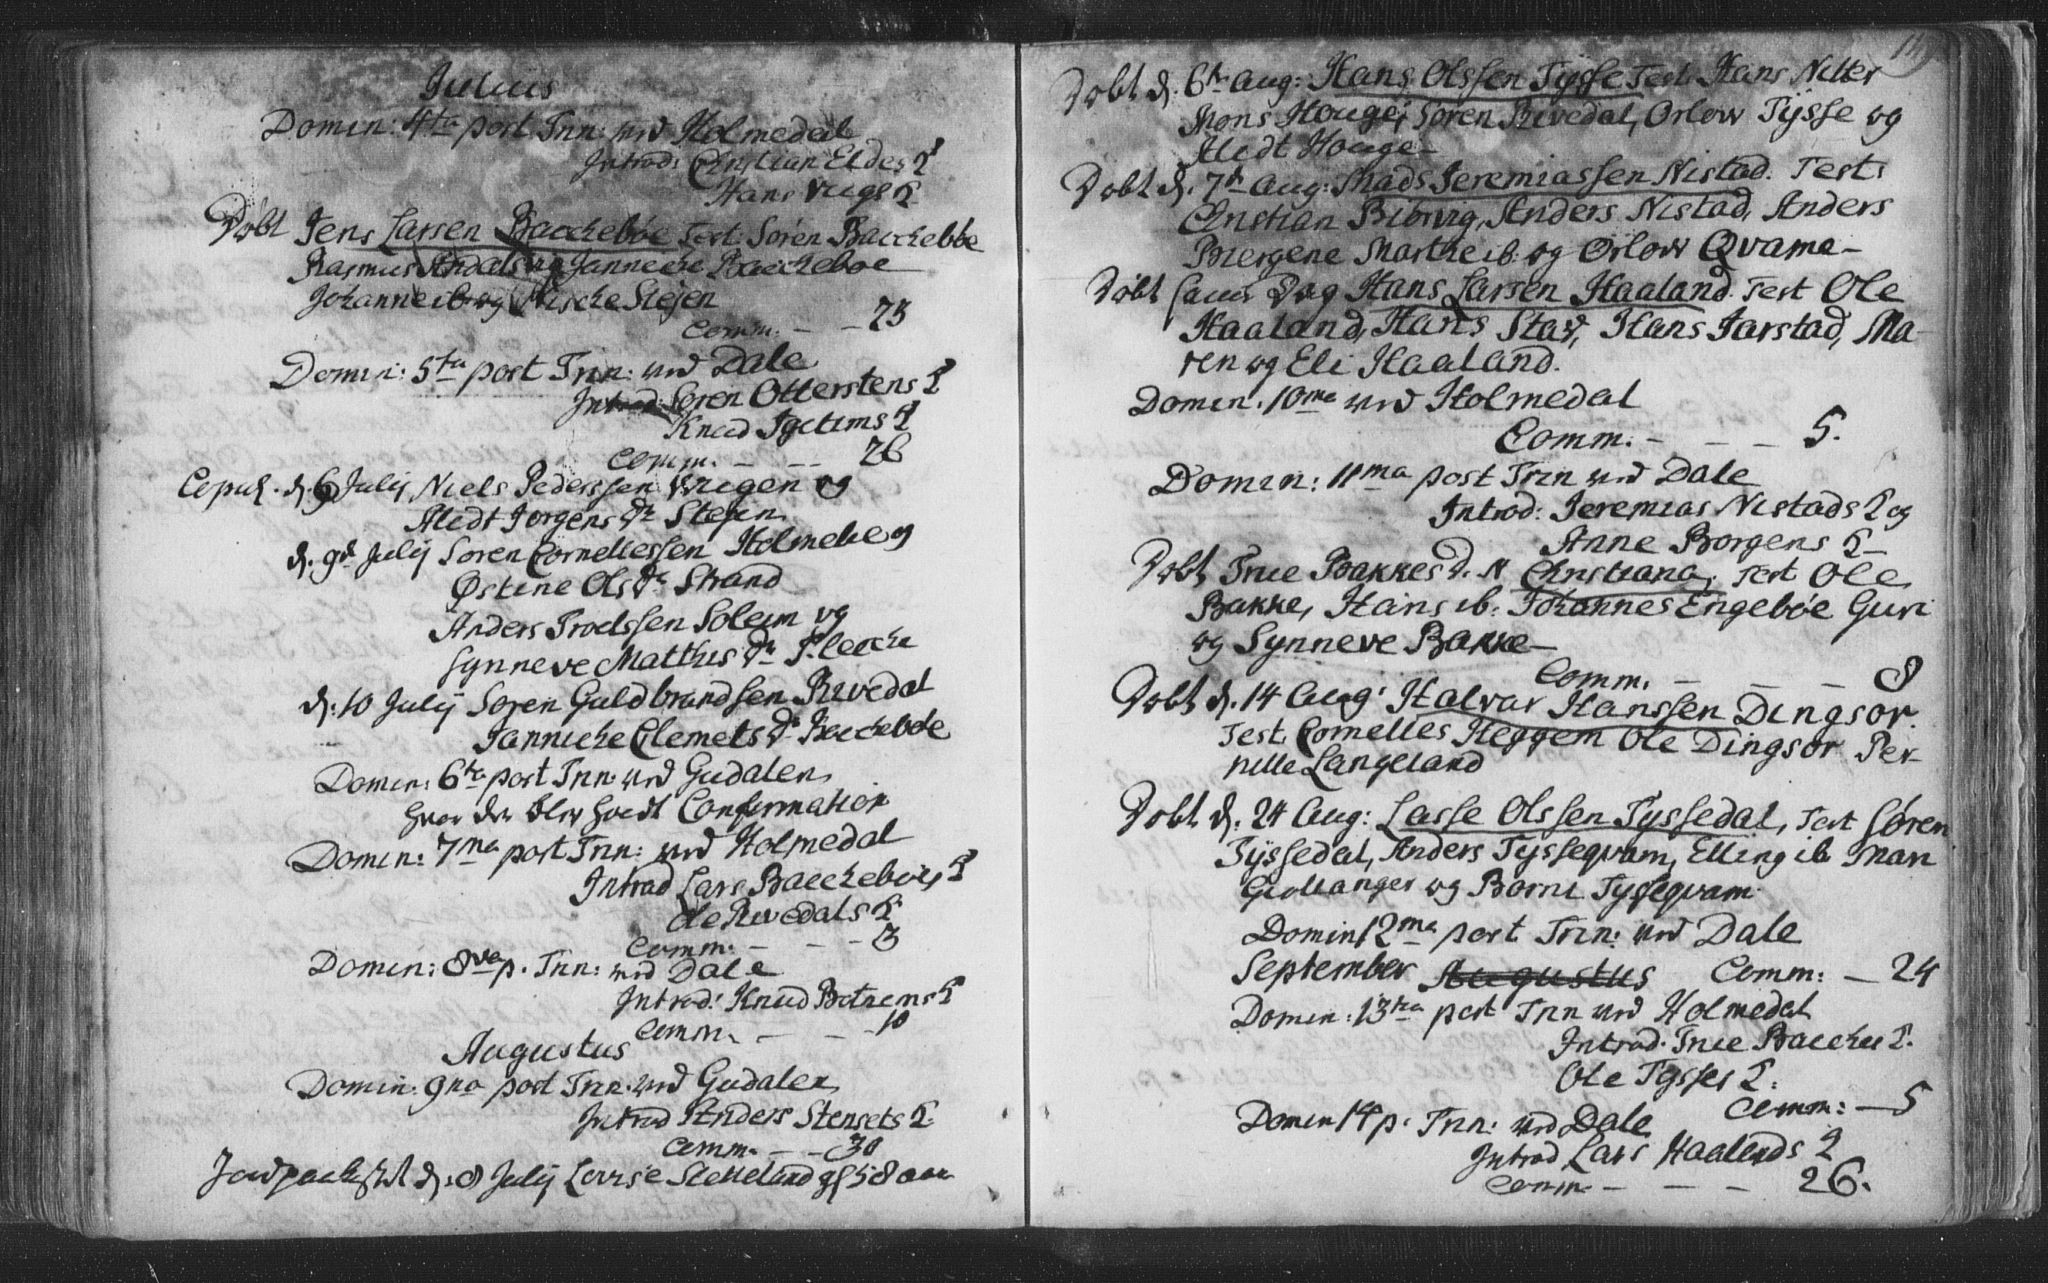 Julius
Domin: 4ta post Trin: ved Holmedal
Introd: Christian Eldes K
Hans K
Døbt Jens Larsen Bacchebøe Test: Søren Bacchebøe
Rasmus og Jannecke Bacchebøe
Johanne ib. og Stejen
Comm. - - 23
Domin: 5ta post Trin: ved Dale
Introd: Søren Otterstens K
Knud Igelems K
Comm. - - 26
Copul. d. 6 Julij Niels Pederssen Vrigen og
Aledt Jørgens dr Stejen
d. 9d Julij Søren Cornellessen Holmeli og
Østene Ols dr. Strand
Anders Troelssen Soleim og
Synneve Matthis dr. Flecche
d. 10 Julij Søren Guldbrandsen Rivedal
Jannicke Clemets dr Bacchebøe
Domin: 6ta post Trin: ved Gudalen
hvor der blev hoedt Confirmation
Domin: 7ma post Trin: ved Holmedal
Introd Lars Bacchebøes K
Ole Rivedals K
Comm. - - - 3
Domin: 8va p. Trin: ved Dale
Introd: Knud Botnens K
Comm. - - 10
Augustus
Domin: 9na post Trin. ved Gudalen
Introd Anders Stensets K
Comm. - - 30
Jordpaakast d. 8 Julij Lovise Sletteland gl 58 aar
Døbt d. 6te Aug: Hans Olssen Tysse Test: Hans Nitter
Mons Houge, Søren Rivedal, Orlow Tysse og
Aledt Houge -
Døbt d. 7d Aug: Mads Jeremiassen Nistad. Test:
Christian Biørvig, Anders Nistad, Anders
Biergene Marthe ib: og Orlow Qvame -
Døbt samme Dag Hans Larsen Haaland. Test Ole
Haaland, Hans Stav, Hans Jarstad, Ma-
ren og Eli Haaland.
Domin: 10ma ved Holmedal
Comm. - - - 5.
Domin: 11ma post Trin ved Dale
Introd: Jeremias Nistads K og
Anne Borgens K -
Døbt True Bakkes d. N Christiana, Test Ole
Bakke, Hans ib: Johannes Engebøe Guri
og Synneve Bakke -
Comm. - - - 8
Døbt d. 14 Aug: Halvar Hanssen Dingsør.
Test Cornelles Heggem Ole Dingsør Per-
nille Langeland
Døbt d. 24 Aug: Lasse Olssen Tyssedal, Test Søren
Tyssedal, Anders Tysseqvam, Elling ib Mari
Giollanger og Børni Tysseqvam.
Domin 12ma post Trin: ved Dale
September Augustus Comm: - 24
Domin: 13tia post Trin ved Holmedal
Introd. True Bacches K.
Ole Tysses K.
Comm: - 5
Domin 14 p. Trin: ved Dale
Introd Lars Haalands K
Comm - - - 26.